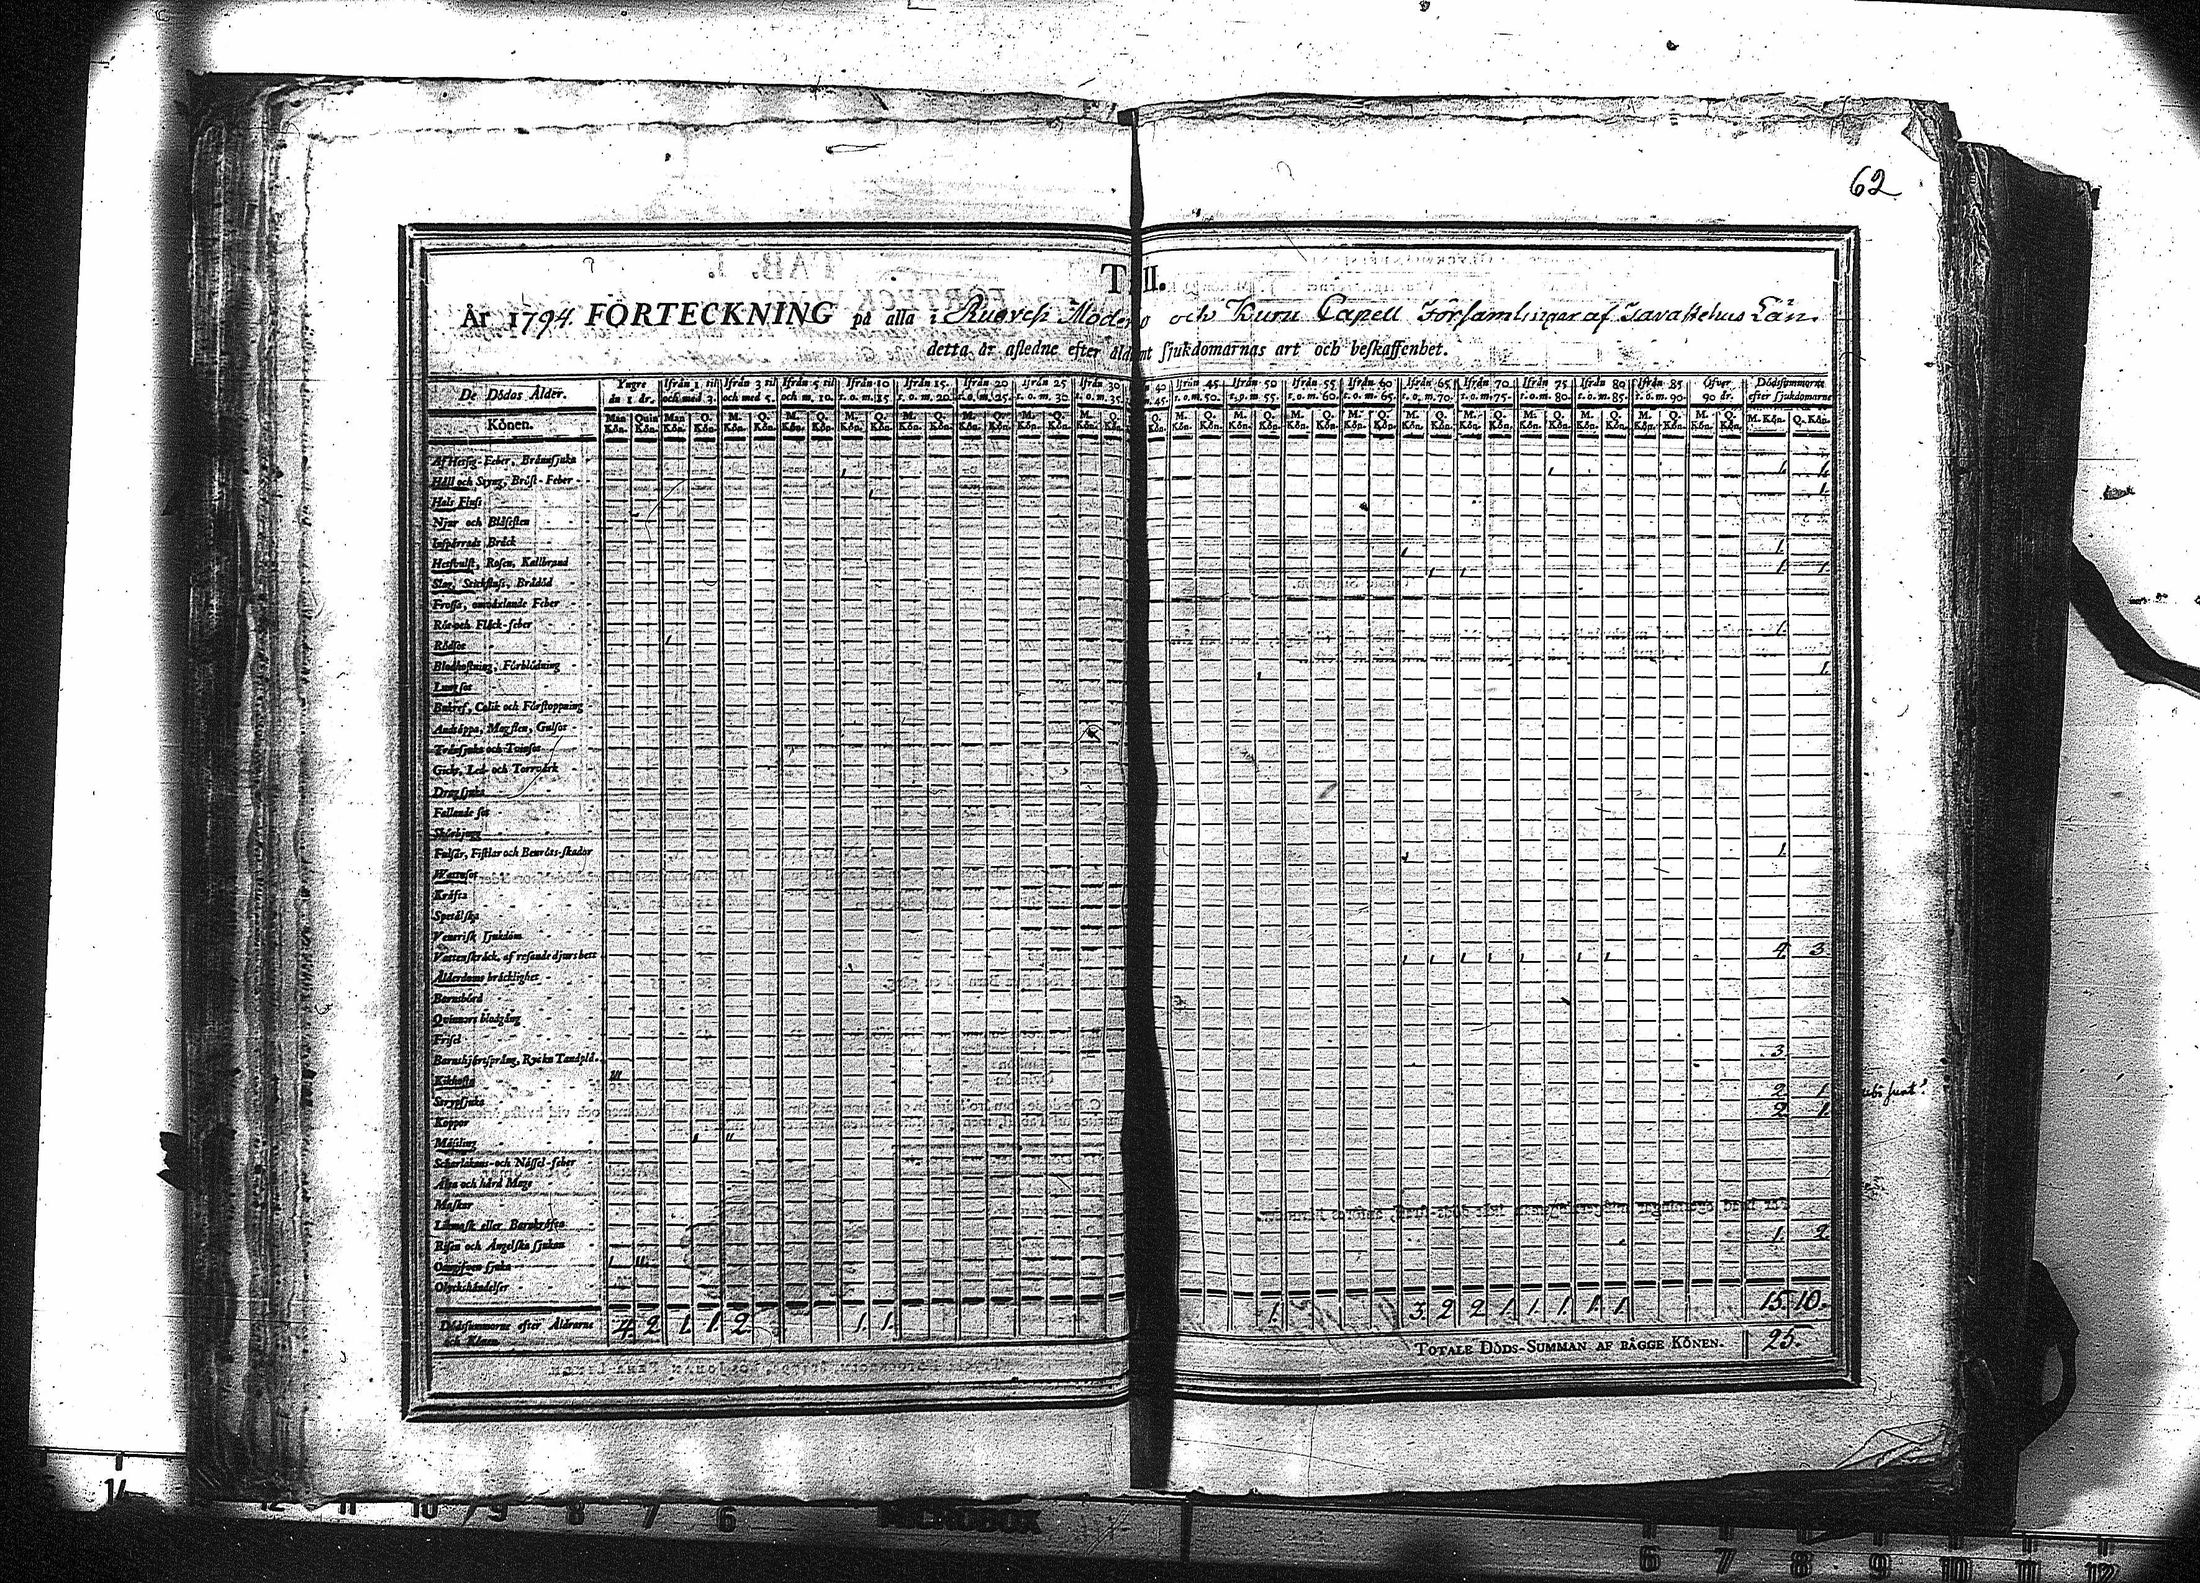 62
T II.
År 1794. FÖRTECKNING på alla i Ruovesi Moder och Kuru Capell Församlingar af Tavastehus Län
detta år afledne efter åld sjukdomarnas art och beskaffenhet.
De Dödas Ålder. Yngre än 1. år. Ifrån 1 til och med 3. Ifrån 3 til och med 5. Ifrån 5 til och m. 10. Ifrån 10 t. o. m. 15 Ifrån 15. t. o. m. 20. Ifrån 20 t. o. m. 25. Ifrån 25 t. o. m. 30. Ifrån 30 t. o. m. 35. 40 45. Ifrån 45 t. o. m. 50. Ifrån 50 t. o. m. 55. Ifrån 55 t. o. m. 60. Ifrån 60 t. o. m. 65. Ifrån 65 t. o. m. 70. Ifrån 70. t. o. m. 75. Ifrån 75 t. o. m. 80. Ifrån 80 t. o. m. 85. Ifrån 85 t. o. m. 90. Öfver 90 år. Dödssummorne efter sjukdomarne
Könen. Man Kön. Quin Kön. Man Kön. Q. Kön. M. Kön. Q. Kön. M. Kön. Q. Kön. M. Kön. Q. Kön. M. Kön. Q. Kön. M. Kön. Q. Kön. M. Kön. Q. Kön. M. Kön. Q. Kön. Q. Kön. M. Kön. Q. Kön. M. Kön. Q. Kön. M. Kön. Q. Kön. M. Kön. Q. Kön. M. Kön. Q. Kön. M. Kön. Q. Kön. M. Kön. Q. Kön. M. Kön. Q. Kön. M. Kön. Q. Kön. M. Kön. Q. Kön. M. Kön. Q. Kön.
Af Hetsig-Feber, Brännsjuka
Håll och Styng, Bröst-Feber 1 1 1. 1.
Hals Fluss 1 1.
Njur och Blåsesten
Inspärrade Bråck
Hetsvulst, Rosen, Kallbrand 1 1.
Slag, Stickfluss, Brådöd 1 1 1. 1
Frossa, omväxlande Feber
Röt- och Fläck-feber
Rödsot 1 1.
Blodhostning, Förblödning
Lungsot 1 1.
Bukref, Colik och Förstoppning
Andtäppa, Magsten, Gulsot
Tränsjuka och Tvinsot
Gickt, Led- och Torrvärk
Dragsjuka
Fallande sot
Skörbjugg
Fulsår, Fistlar och Benröts-skador
Wattusot 1 1.
Kräfta
Spetälska
Venerisk sjukdom
Vattenskräck, af rasande djurs bett
Ålderdoms bräcklighet 1 1 1 1 1 1 1 4. 3
Barnsbörd
Qvinnors blodgång
Frisel
Barnshjertsprång, Rycka Tandplå.
Kikhosta 3
Strypsjuka
Koppor 2. 1. ubi sunt?
Mässling 1 2. 1.
Scharlakans- och Nässel-feber
Älta och hård Mage
Maskar
Likmask eller Barnkräfta
Risen och Ångelska sjukan
Oangifven sjuka 1 1. 2.
Olyckshändelser
Dödssummorne efter Åldrarne och Könen 4. 2 1. 1. 2 1. 1. 1. 3. 2 2 1. 1. 1. 1. 1. 15. 10.
TOTALE DÖDS-SUMMAN AF BÄGGE KÖNEN. 25.
14
12 11 10 9 8 7 6
MICROBOX
6 7 8 9 10 11 12